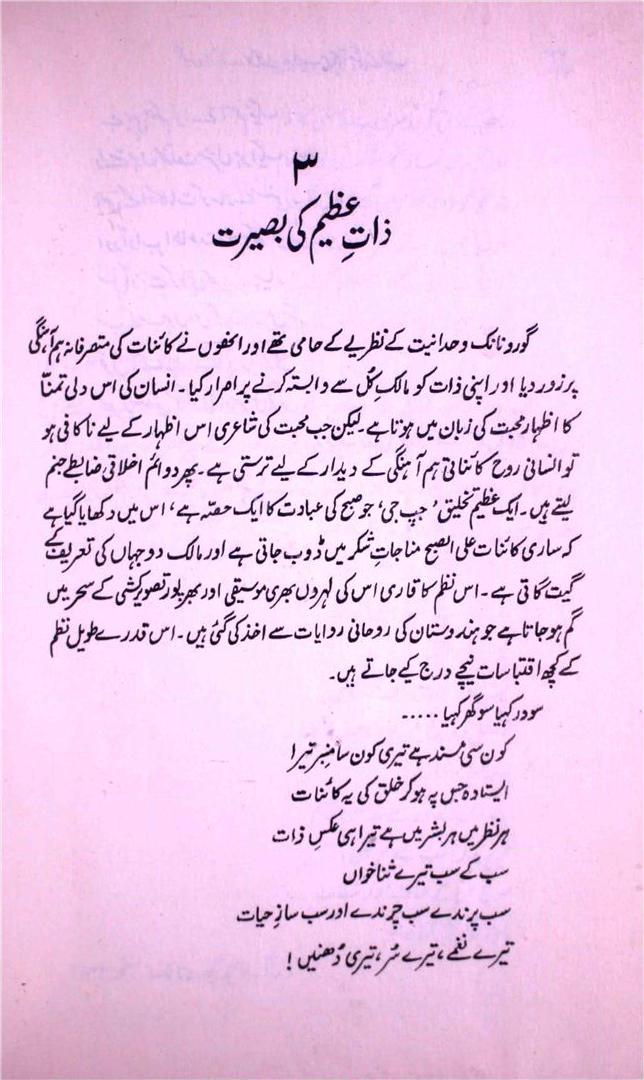 ۳
ذاتِ عظیم کی بصیرت
گورو نانک وحدانیت کے نظریے کے حامی تھے اور انھوں نے کائنات کی متصرفانہ ہم آہنگی
پر زور دیا اور اپنی ذات کو مالکِ کُل سے وابستہ کرنے پر اصرار کیا۔ انسان کی اس دلی تمنّا
کا اظہار محبت کی زبان میں ہوتا ہے۔ لیکن جب محبت کی شاعری اس اظہار کے لیے ناکافی ہو
تو انسانی روح کائناتی ہم آہنگی کے دیدار کے لیے ترستی ہے۔ پھر دوائم اخلاقی ضابطے جنم
لیتے ہیں۔ ایک عظیم تخلیق، 'جپ جی' جو صبح کی عبادت کا ایک حصّہ ہے، اس میں دکھایا گیا ہے
کہ ساری کائنات علی الصبح مناجاتِ شکر میں ڈوب جاتی ہے اور مالک دوجہاں کی تعریف کے
گیت گاتی ہے۔ اس نظم کا قاری اس کی لہروں بھری موسیقی اور بھرپور تصویر کشی کے سحر میں
گم ہو جاتا ہے جو ہندوستان کی روحانی روایات سے اخذ کی گئی ہیں۔ اس قدرے طویل نظم
کے کچھ اقتباسات نیچے درج کیے جاتے ہیں۔
سو در کہیا سو گھر کہیا .....
کون سی مسند ہے تیری کون سا منبر تیرا
ایستادہ جس پہ ہو کر خلق کی یہ کائنات
ہر نظر میں ہر بشر میں ہے تیرا ہی عکسِ ذات
سب کے سب تیرے ثنا خواں
سب پرندے سب چرندے اور سب سازِ حیات
تیرے نغمے، تیرے سُر، تیری دُھنیں!